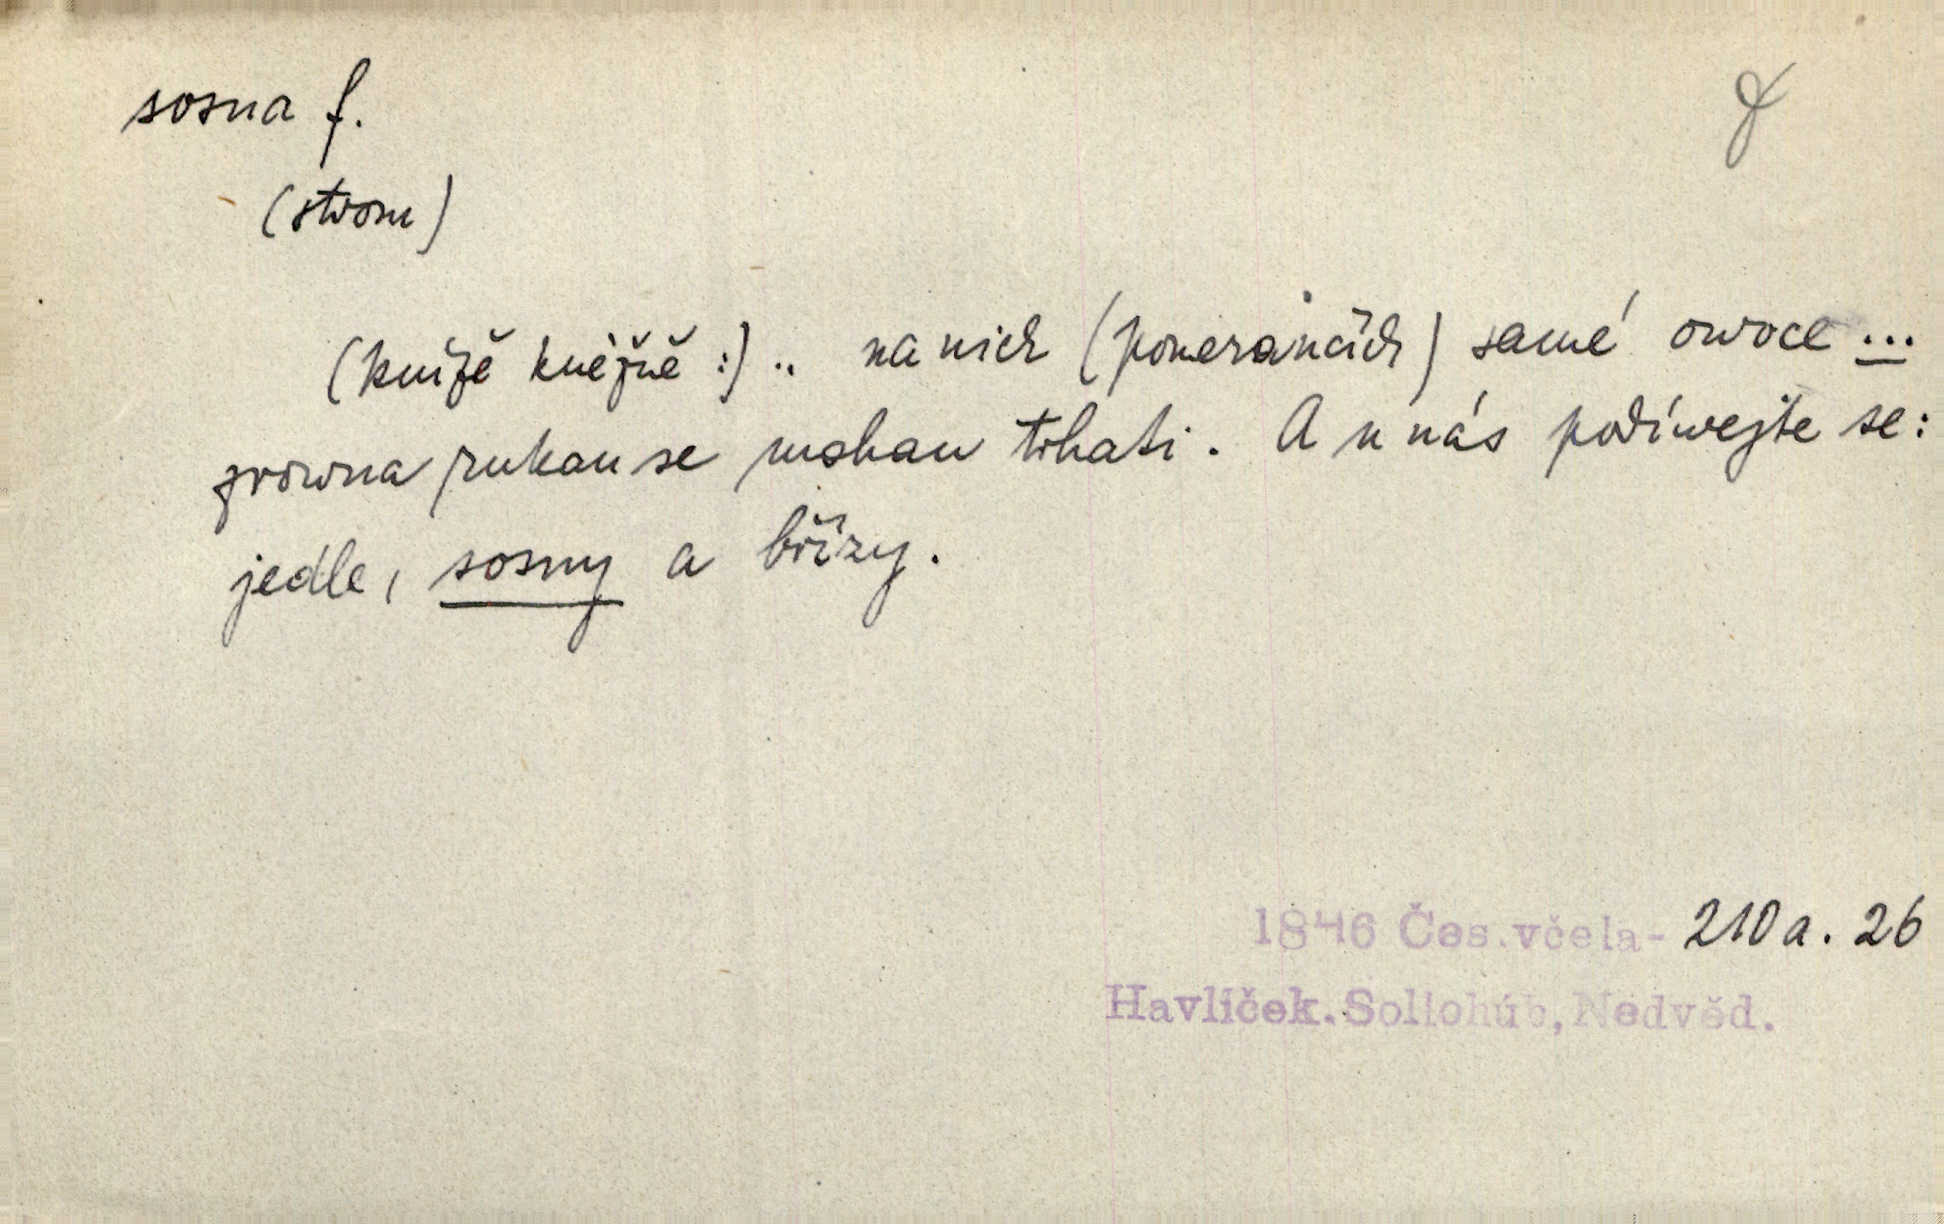 sosna f.
(strom)
(kníže kněžně:) .. na nich (pomerančích) samé owoce ...
zrowna rukau se mohau trhati. A u nás podíwejte se:
jedle, sosny a břízy.
1846 Čes.včela- 210a. 26
Havlíček.Sollohúb,Nedvěd.